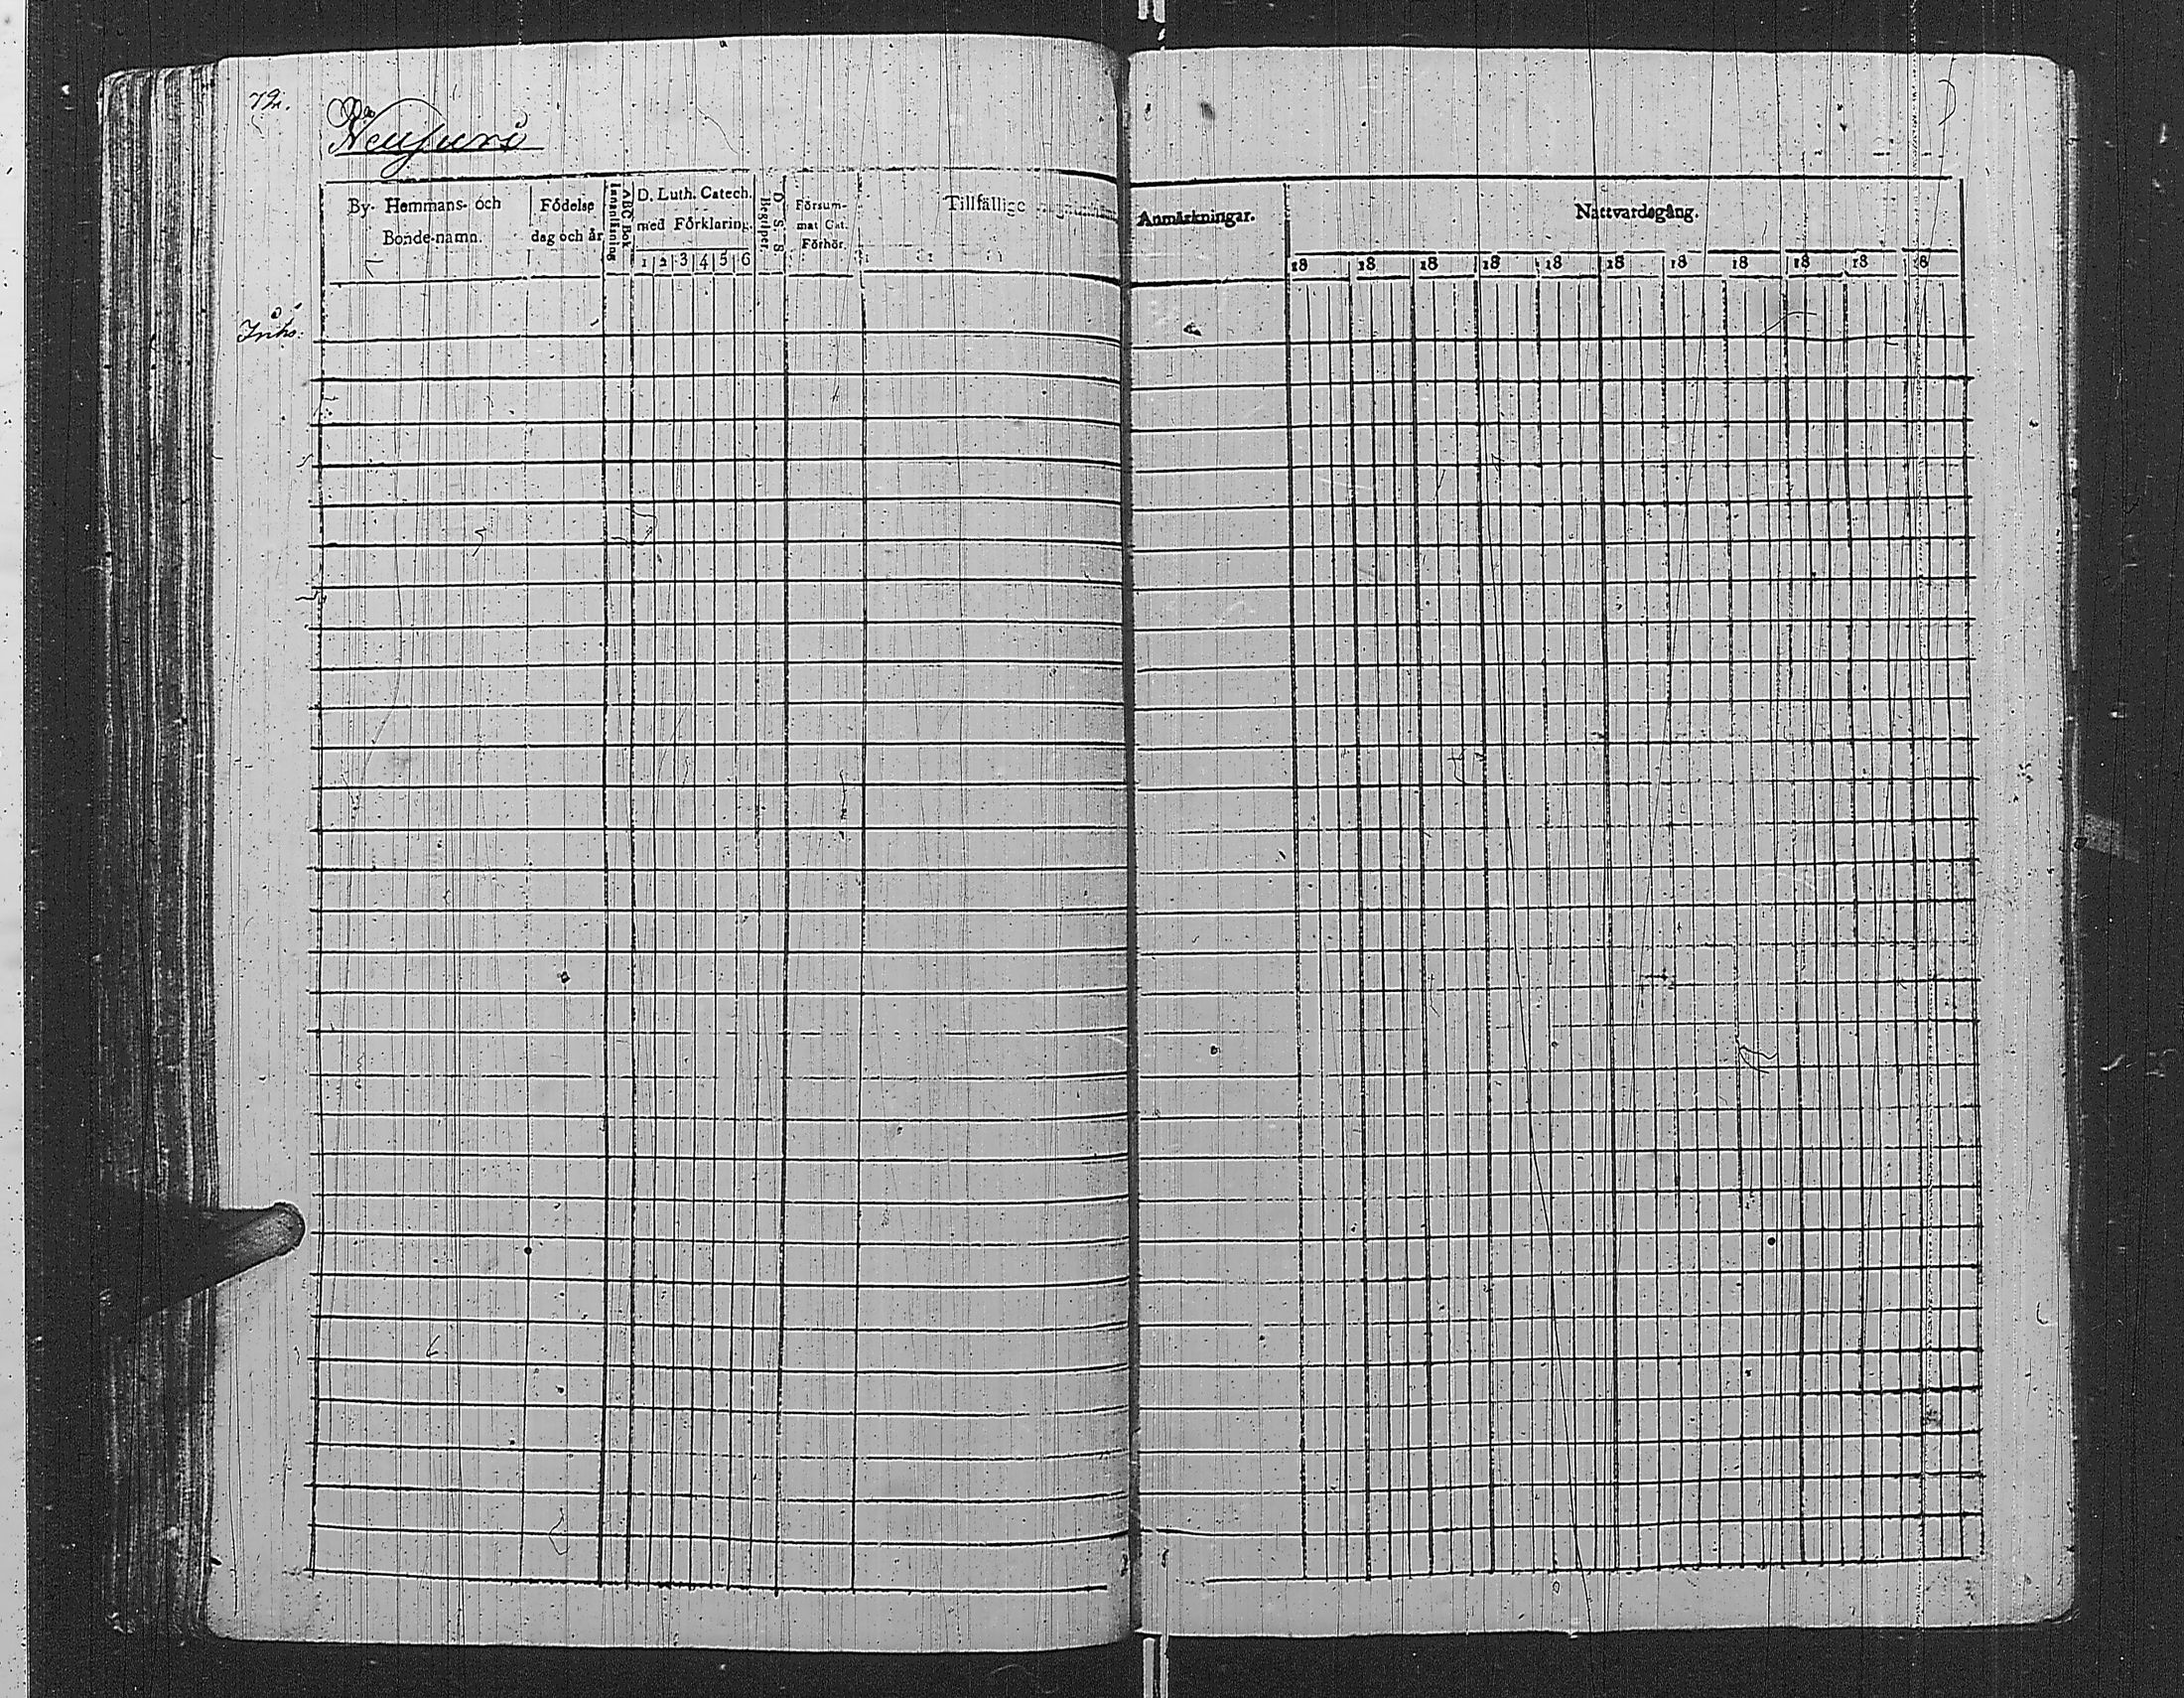 72.
By- Hemmans- och
Bonde-namn.
Födelse
dag och år
Innanläsning
ABC Bok
D. Luth. Catech.
med Förklaring.
1 2 3 4 5 6
D. S. S.
Begriper
Försum-
mat Cat.
Förhör.
Tillfällige
Anmärkningar.
Nattvardsgång.
18 18 18 18 18 18 18 18 18 18 18
Inhs.